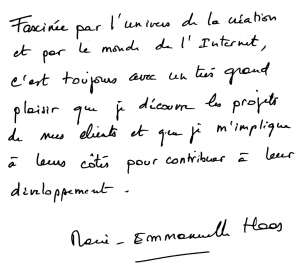 Fascinée par l'univers de la création
et par le monde de l'Internet,
c'est toujours avec un très grand
plaisir que je découvre les projets
de mes clients et que je m'implique
à leurs côtés pour contribuer à leur
développement.
Marie-Emmanuelle Haas